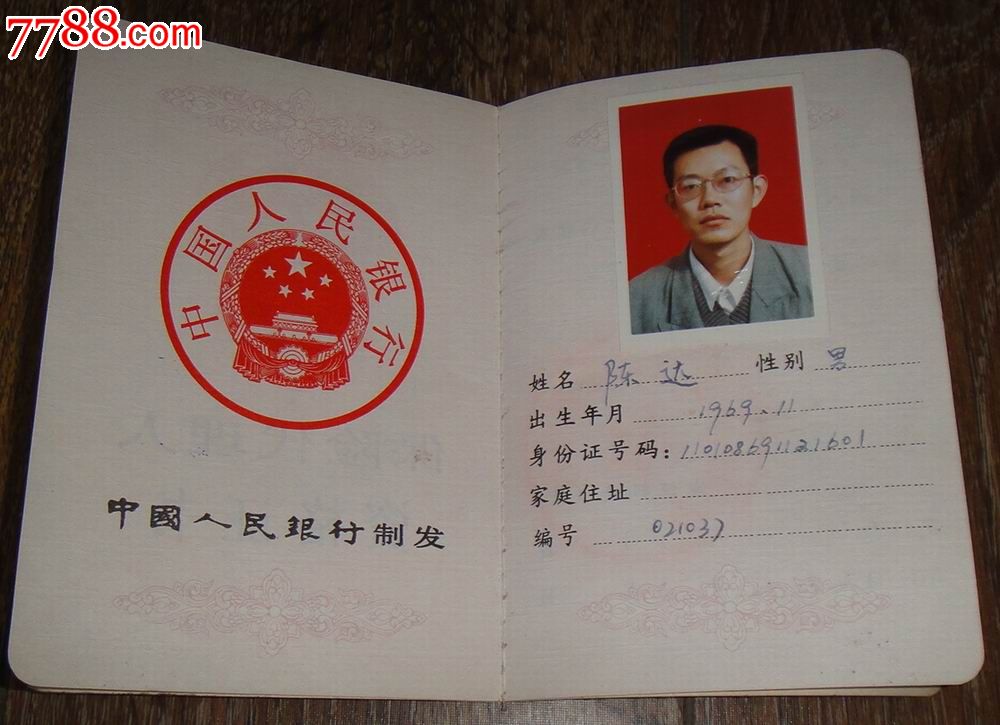 7788.com
中国人民银行
中國人民銀行制发
姓名 陈达 性别 男
出生年月 1969.11
身份证号码：110108691121601
家庭住址
编号 021037